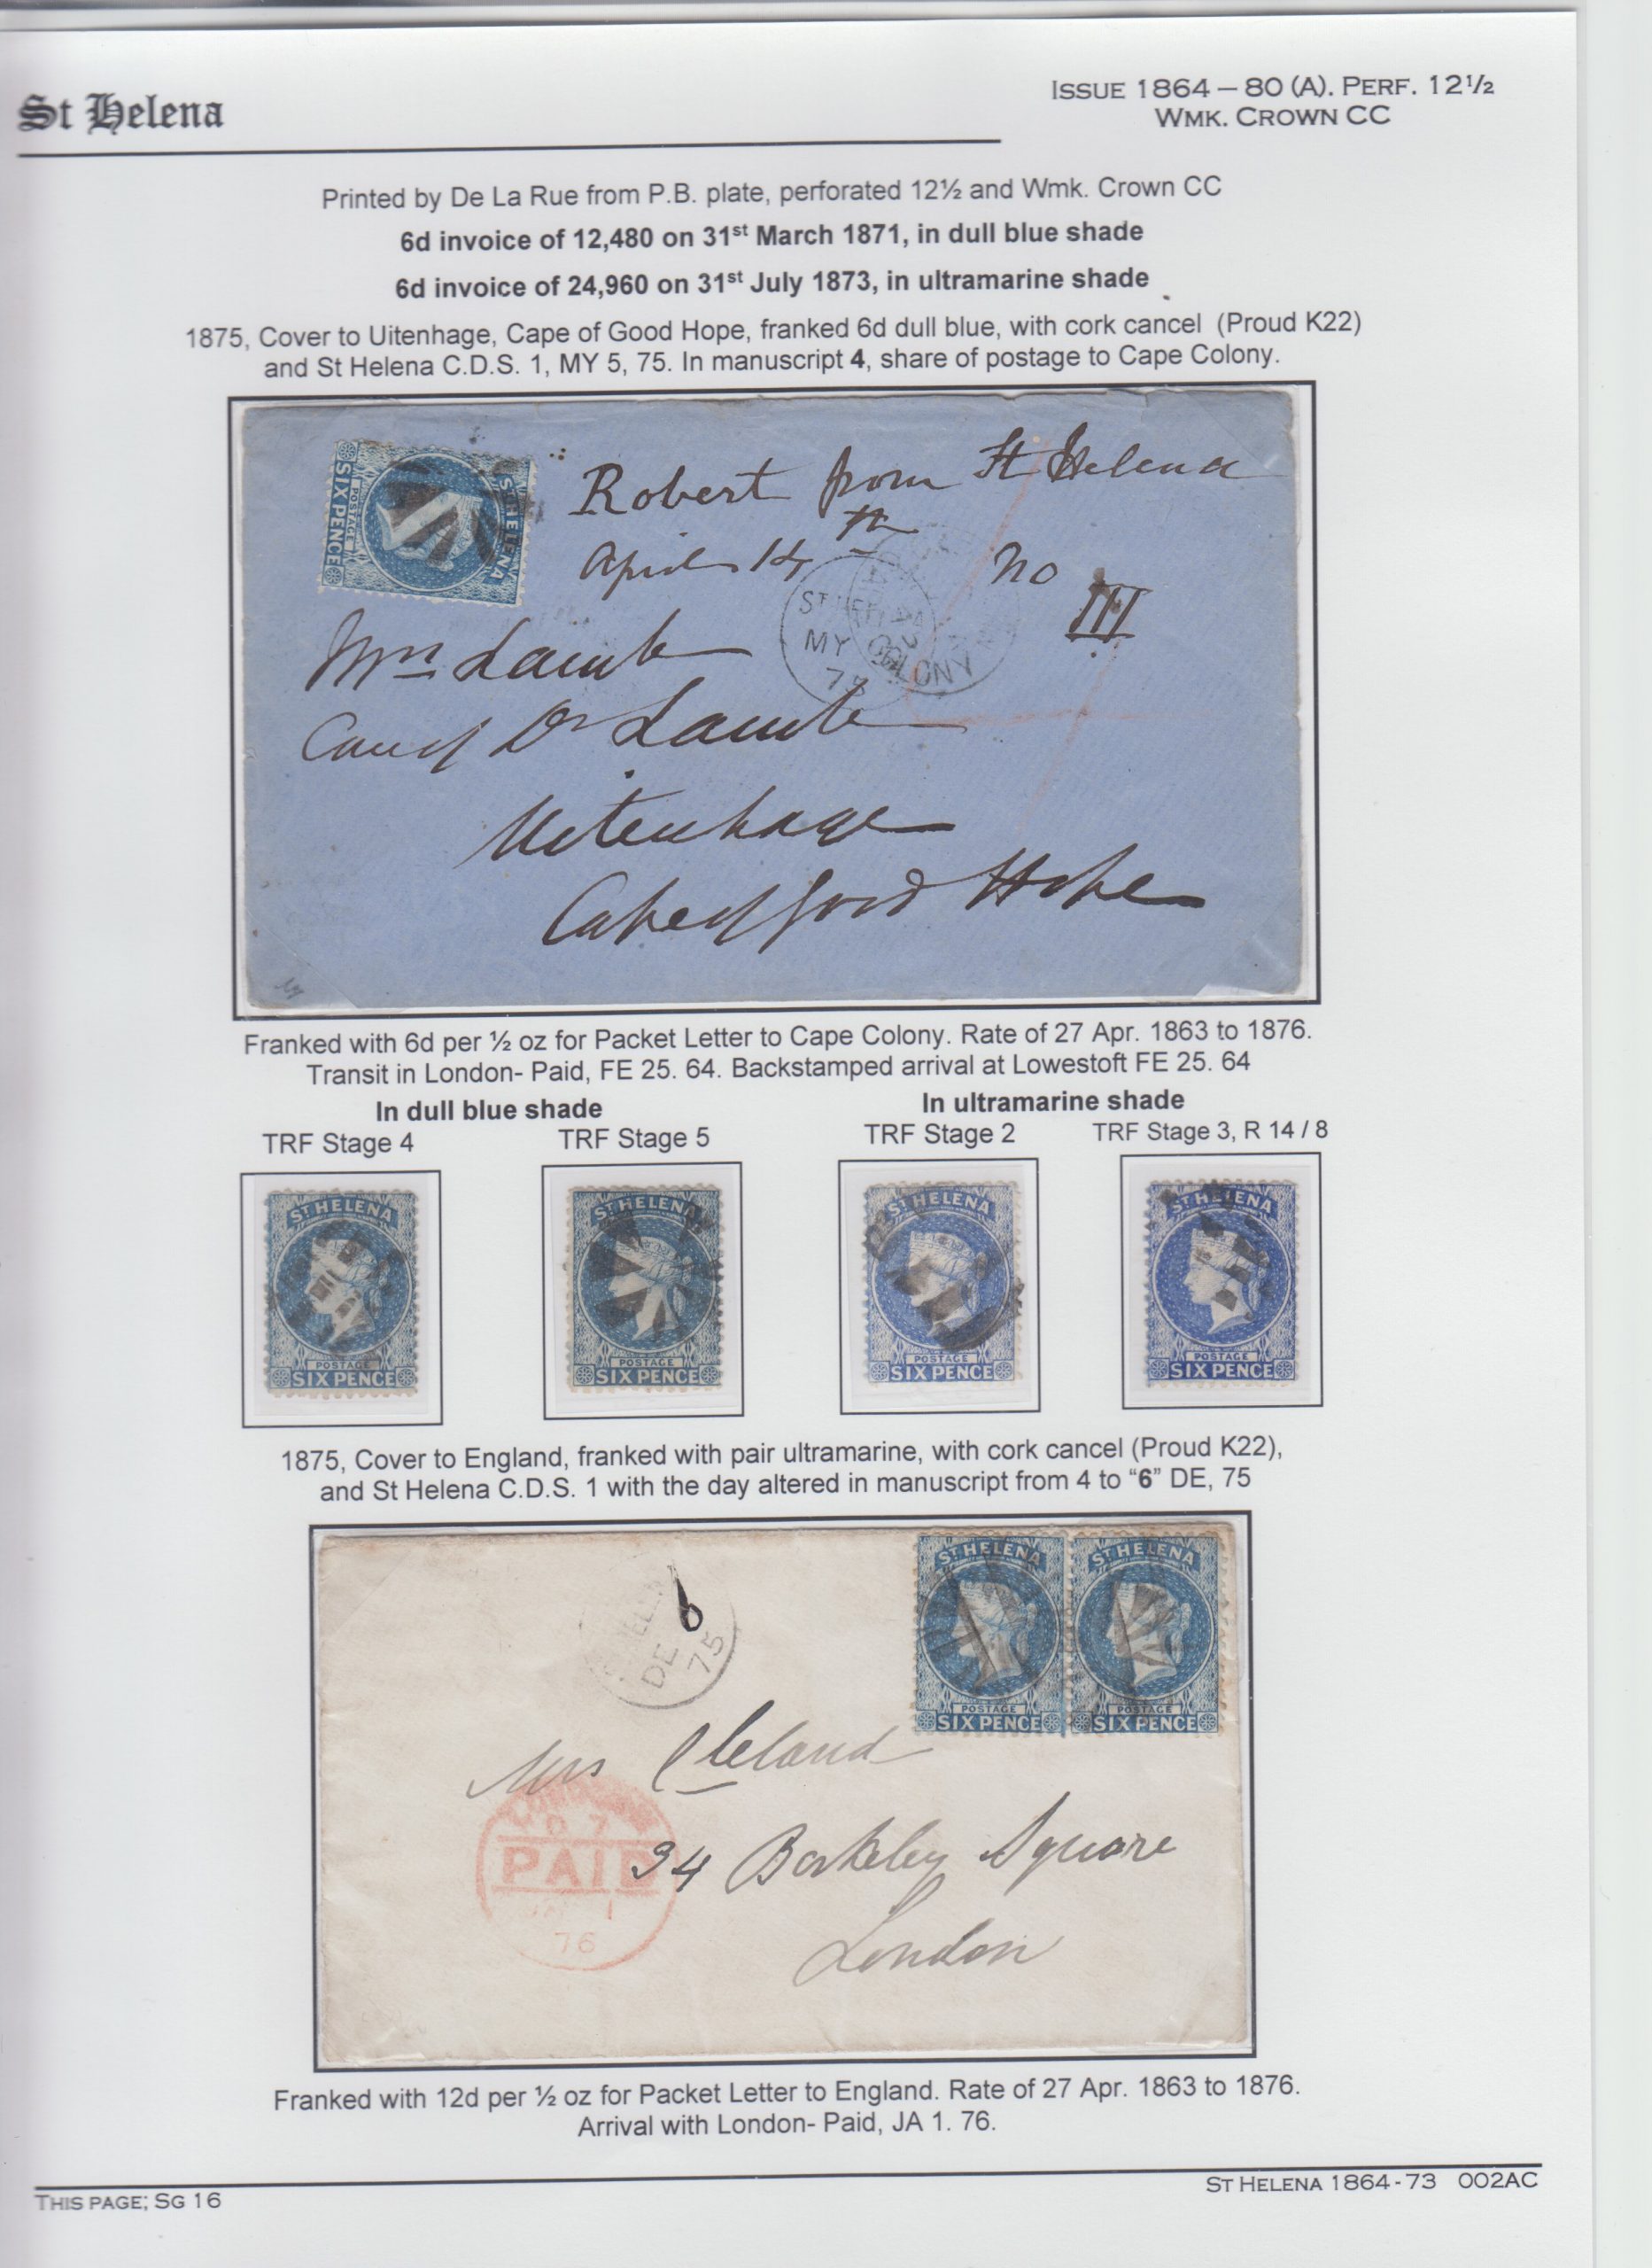 St Helena
ISSUE 1864 – 80 (A). PERF. 12½
WMK. CROWN CC
Printed by De La Rue from P.B. plate, perforated 12½ and Wmk. Crown CC
6d invoice of 12,480 on 31st March 1871, in dull blue shade
6d invoice of 24,960 on 31st July 1873, in ultramarine shade
1875, Cover to Uitenhage, Cape of Good Hope, franked 6d dull blue, with cork cancel (Proud K22)
and St Helena C.D.S. 1, MY 5, 75. In manuscript 4, share of postage to Cape Colony.
ST HELENA
POSTAGE
SIX PENCE
Robert from St Helena
April 14th no III
ST HELENA
MY
75
COLONY
Mrs Lamb
Care of Dr Lamb
Uitenhage
Cape of Good Hope
Franked with 6d per ½ oz for Packet Letter to Cape Colony. Rate of 27 Apr. 1863 to 1876.
Transit in London- Paid, FE 25. 64. Backstamped arrival at Lowestoft FE 25. 64
In dull blue shade
In ultramarine shade
TRF Stage 4
TRF Stage 5
TRF Stage 2
TRF Stage 3, R 14 / 8
ST HELENA
POSTAGE
SIX PENCE
ST HELENA
POSTAGE
SIX PENCE
ST HELENA
POSTAGE
SIX PENCE
ST HELENA
POSTAGE
SIX PENCE
1875, Cover to England, franked with pair ultramarine, with cork cancel (Proud K22),
and St Helena C.D.S. 1 with the day altered in manuscript from 4 to “6” DE, 75
6
DE
75
ST HELENA
POSTAGE
SIX PENCE
ST HELENA
POSTAGE
SIX PENCE
Mrs Cleland
34 Berkeley Square
London
PAID
1
76
Franked with 12d per ½ oz for Packet Letter to England. Rate of 27 Apr. 1863 to 1876.
Arrival with London- Paid, JA 1. 76.
THIS PAGE; SG 16
ST HELENA 1864-73 002AC